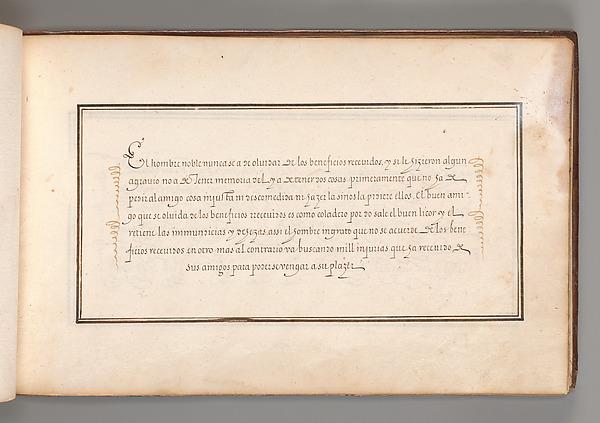 El hombre noble nunca se a de olvidar de los beneficios recevidos, y si le hizieron algun
agravio no a de tener memoria del, y a de tener dos cosas primeramente que no ha de
pedir al amigo cosa injusta ni descomedida ni hazerla si nos la pidiere ellos. El buen ami-
go que se olvida de los beneficios rrecevidos es como coladero por do sale el buen licor y el
retiene las immundicias y hezas, assi el hombre ingrato que no se acuerde de los bene
ficios recevidos en otro mas al contrario va buscando mill injurias que ha recevido de
sus amigos para poderse vengar a su plazer